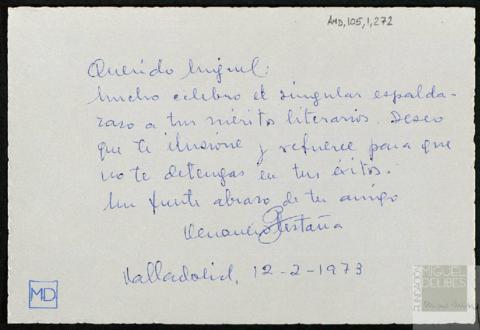 AMD,105,1,272
Querido Miguel:
Mucho celebro el singular espalda-
razo a tus méritos literarios. Deseo
que te ilusione y refuerce para que
no te detengas en tus éxitos.
Un fuerte abrazo de tu amigo
Valladolid, 12-2-1973
MD
FUNDACIÓN
MIGUEL
DELIBES